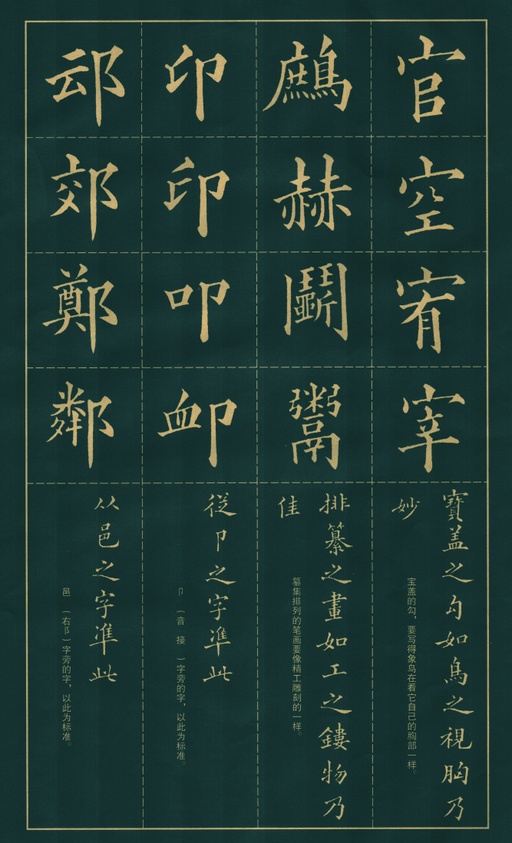 官
空
宥
宰
寶盖之勾如鳥之視胸乃
妙
宝盖的勾，要写得象鸟在看它自己的胸部一样。
鷓
赫
鬭
鬻
排纂之畫如工之鏤物乃
佳
纂集排列的笔画要像精工雕刻的一样。
印
卬
叩
卹
從卩之字準此
卩 （音 接 ）字旁的字，以此为标准。
邧
郊
鄭
鄰
从邑之字準此
邑 （右阝）字旁的字，以此为标准